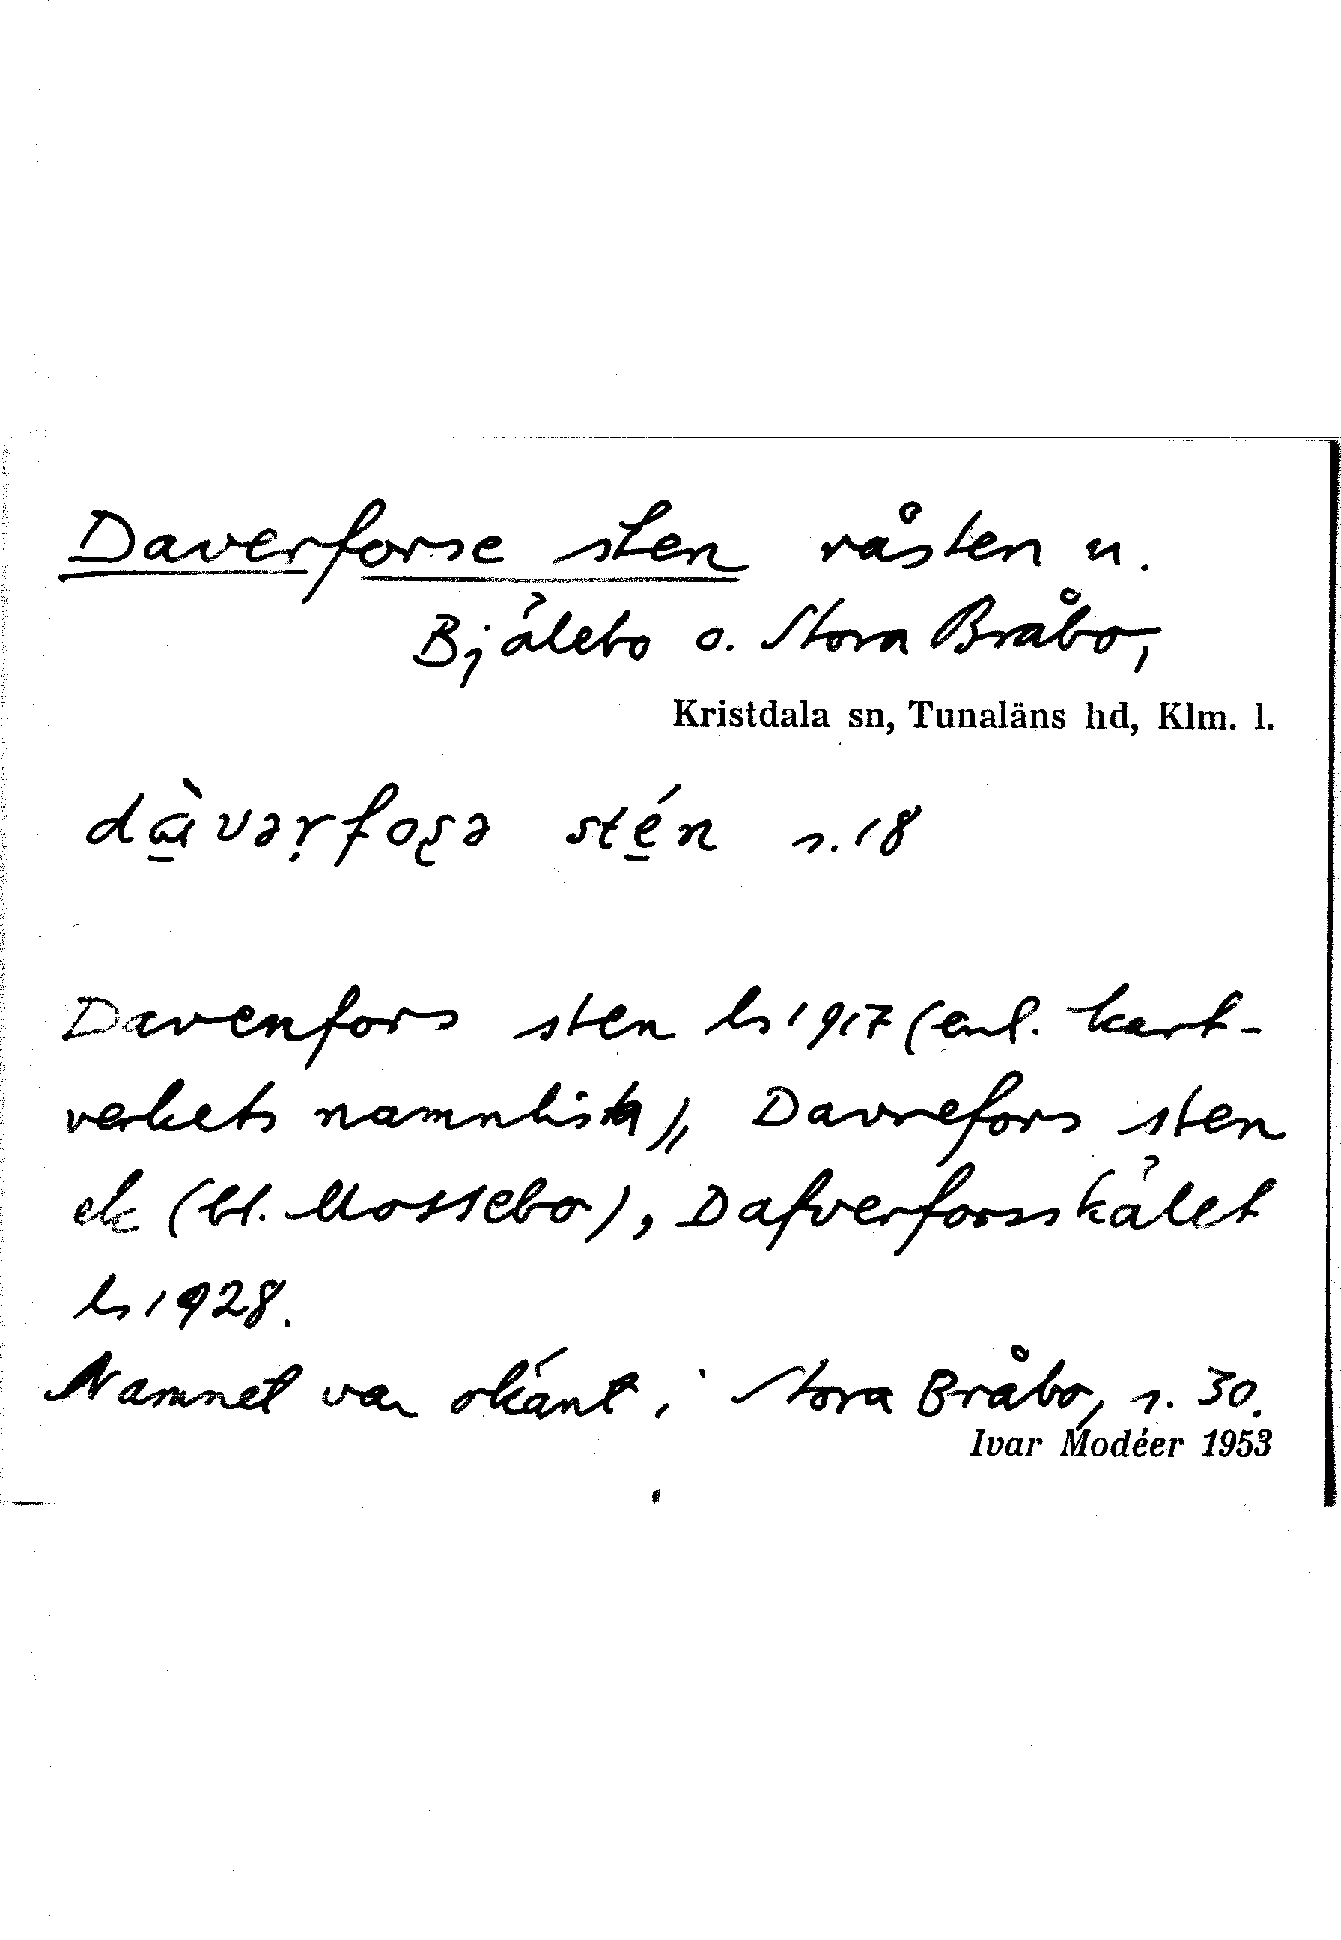 Daverforse sten råsten u.
Bjälebo o. Stora Bråbo,
Kristdala sn, Tunaläns hd, Klm. l.
sten s. 18
Davenfors sten ls 1917 (enl. kart-
verkets namnlista), Davrefors sten
ek (bl. Mossebo), Dafverforsskälet
ls 1928.
Namnet var okänt i Stora Bråbo, s. 30.
Ivar Modéer 1953